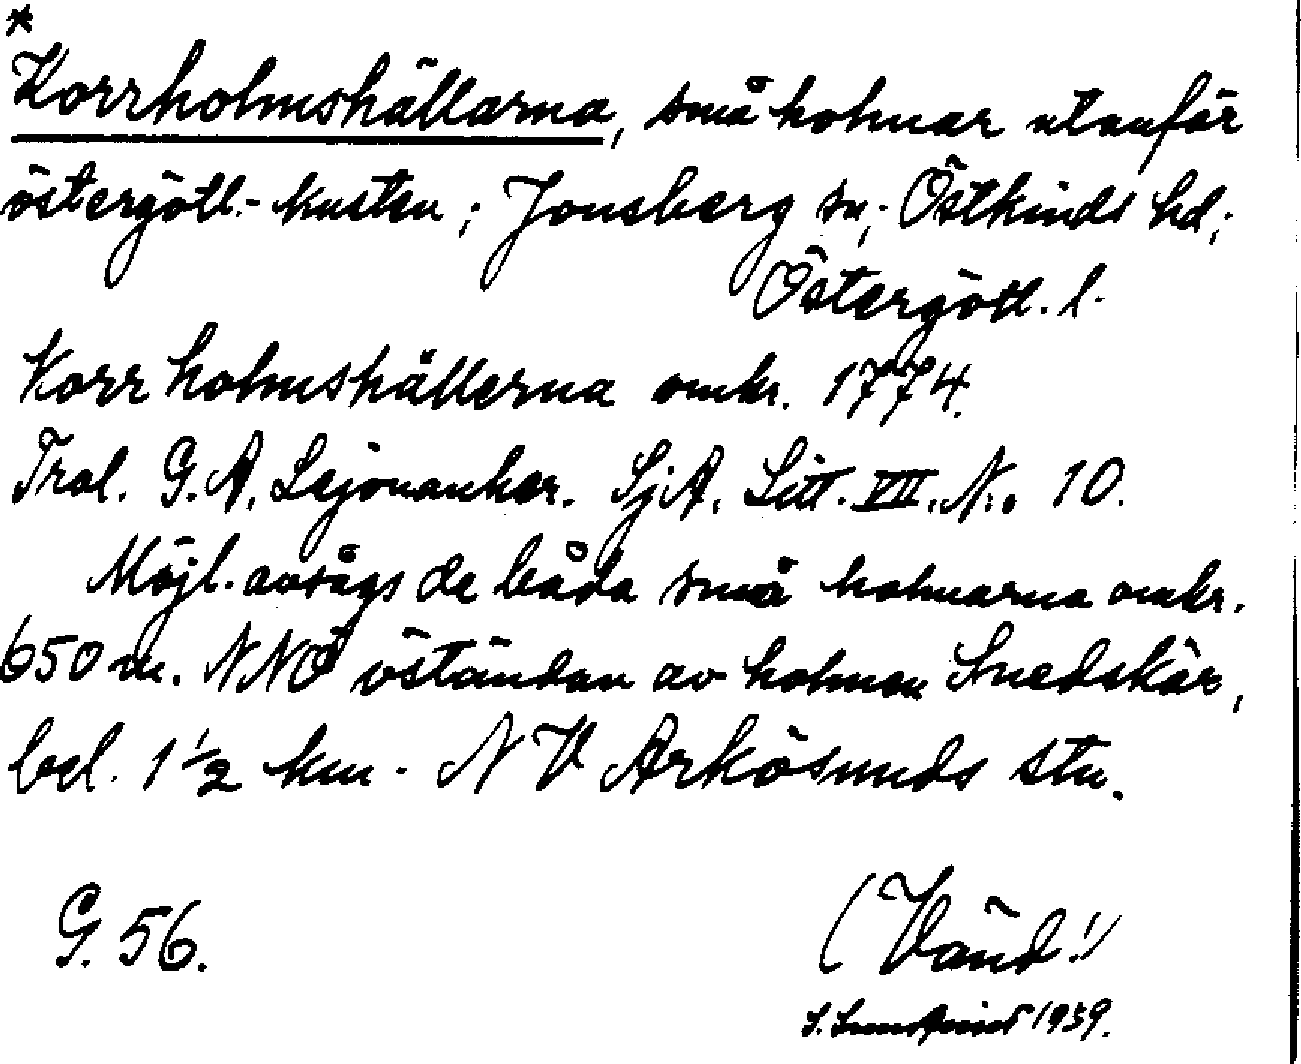 *
Korrholmshällarna, små holmar utanför
östergötl.-kusten; Jonsberg sn; Östkinds hd;
Östergötl. l.
Korrholmshällerna omkr. 1774.
Trol. G. A. Lejonanker. SjA. Litt. VII. No. 10.
Möjl. avsågs de båda små holmarna omkr.
650 m. NNÖ östandan av holmen Snedskär,
bel. 1 1/2 km. NV Arkösunds stn.
G. 56.
(Vänd!)
1939.